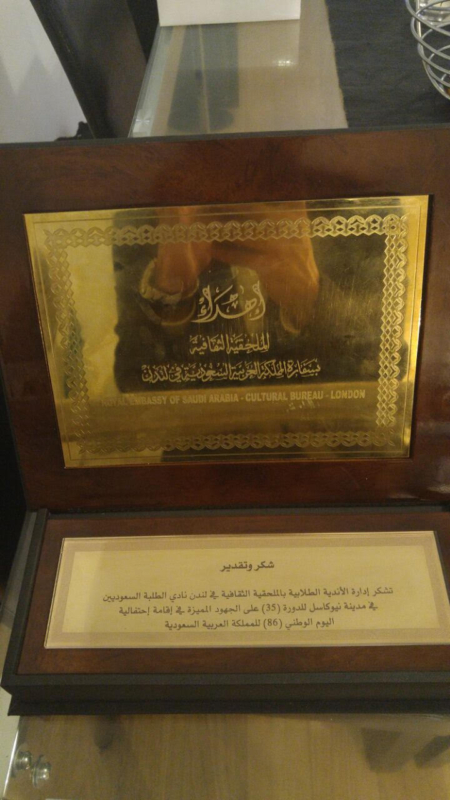 إهداء
الملحقية الثقافية
بسفارة المملكة العربية السعودية في لندن
ROYAL EMBASSY OF SAUDI ARABIA - CULTURAL BUREAU - LONDON
شكر وتقدير
تشكر إدارة الأندية الطلابية بالملحقية الثقافية في لندن نادي الطلبة السعوديين
في مدينة نيوكاسل للدورة (35) على الجهود المميزة في إقامة إحتفالية
اليوم الوطني (86) للمملكة العربية السعودية